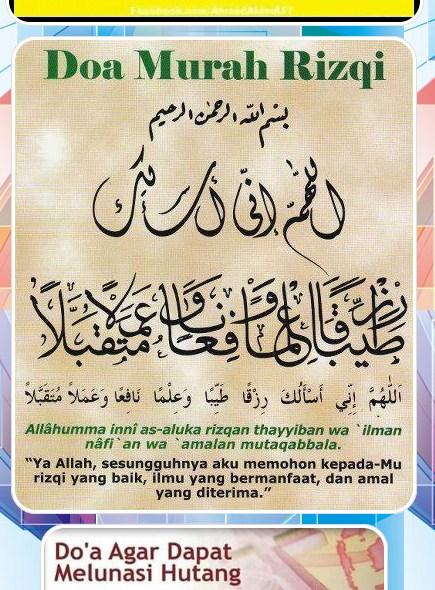 Facebook.com/AhmadAkmal.FZ
Doa Murah Rizqi
بسم الله الرحمن الرحيم
اللهم إني أسألك
رزقا طيبا وعلما نافعا وعملا متقبلا
اَللّٰهُمَّ إِنِّي أَسْأَلُكَ رِزْقًا طَيِّبًا وَعِلْمًا نَافِعًا وَعَمَلاً مُتَقَبَّلاً
Allâhumma innî as-aluka rizqan thayyiban wa `ilman
nâfi`an wa `amalan mutaqabbala.
“Ya Allah, sesungguhnya aku memohon kepada-Mu
rizqi yang baik, ilmu yang bermanfaat, dan amal
yang diterima.”
Do'a Agar Dapat
Melunasi Hutang